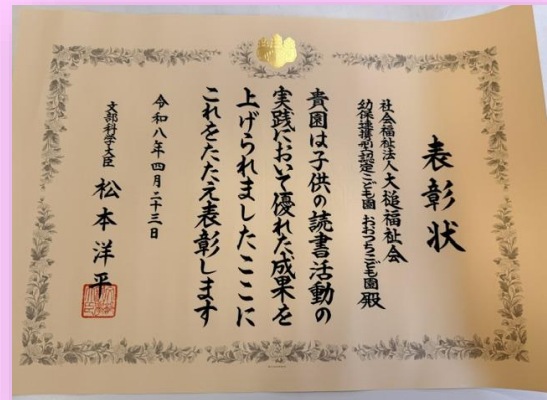 表彰状
社会福祉法人大槌福祉会
幼保連携型認定こども園 おおつちこども園 殿
貴園は子供の読書活動の
実践において優れた成果を
上げられましたここに
これをたたえ表彰します
令和八年四月二十三日
文部科学大臣 松本洋平